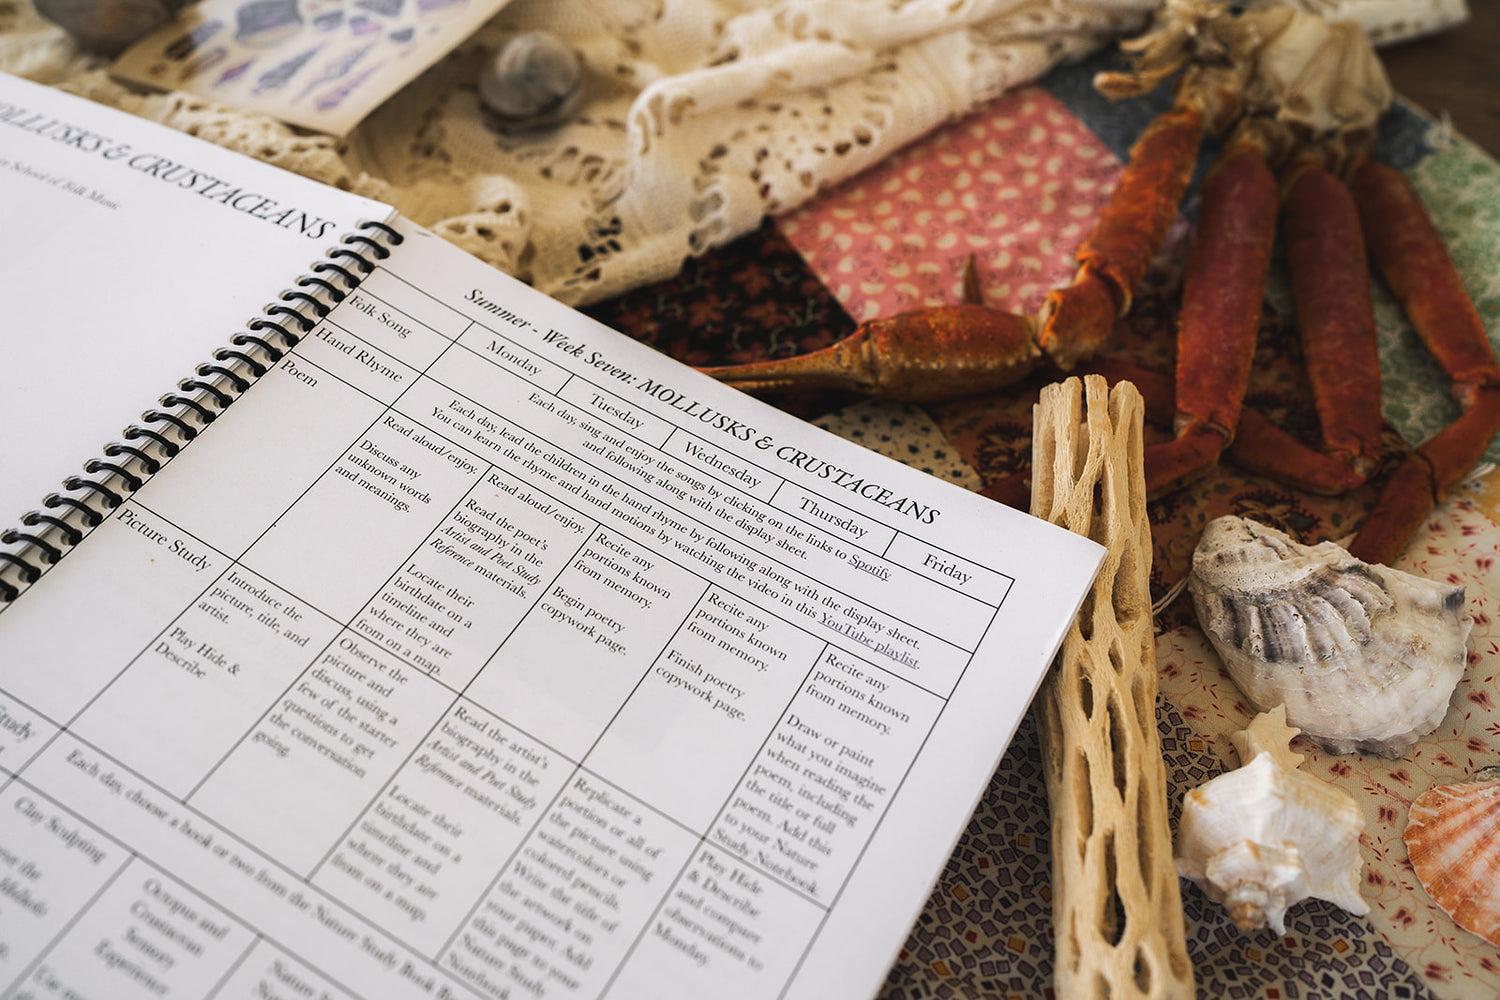 MOLLUSKS & CRUSTACEANS
School of Folk Music
Summer - Week Seven: MOLLUSKS & CRUSTACEANS
Monday
Tuesday
Wednesday
Thursday
Friday
Folk Song
Each day, sing and enjoy the songs by clicking on the links to Spotify
and following along with the display sheet.
Hand Rhyme
Each day, lead the children in the hand rhyme by following along with the display sheet.
You can learn the rhyme and hand motions by watching the video in this YouTube playlist.
Poem
Read aloud/enjoy.
Discuss any
unknown words
and meanings.
Read aloud/enjoy.
Read the poet's
biography in the
Artist and Poet Study
Reference materials.
Locate their
birthdate on a
timeline and
where they are
from on a map.
Recite any
portions known
from memory.
Begin poetry
copywork page.
Recite any
portions known
from memory.
Finish poetry
copywork page.
Recite any
portions known
from memory.
Draw or paint
what you imagine
when reading the
poem, including
the title or full
poem. Add this
to your Nature
Study Notebook.
Picture Study
Introduce the
picture, title, and
artist.
Play Hide &
Describe
Observe the
picture and
discuss, using a
few of the starter
questions to get
the conversation
going.
Read the artist's
biography in the
Artist and Poet Study
Reference materials.
Locate their
birthdate on a
timeline and
where they are
from on a map.
Replicate a
portion or all of
the picture using
watercolors or
colored pencils.
Write the title of
the artwork on
your paper. Add
this page to your
Nature Study
Notebook.
Play Hide
& Describe
and compare
observations to
Monday.
Study
Each day, choose a book or two from the Nature Study Book
Clay Sculpting
the
Octopus and
Crustacean
Sensory
Experience
Nature